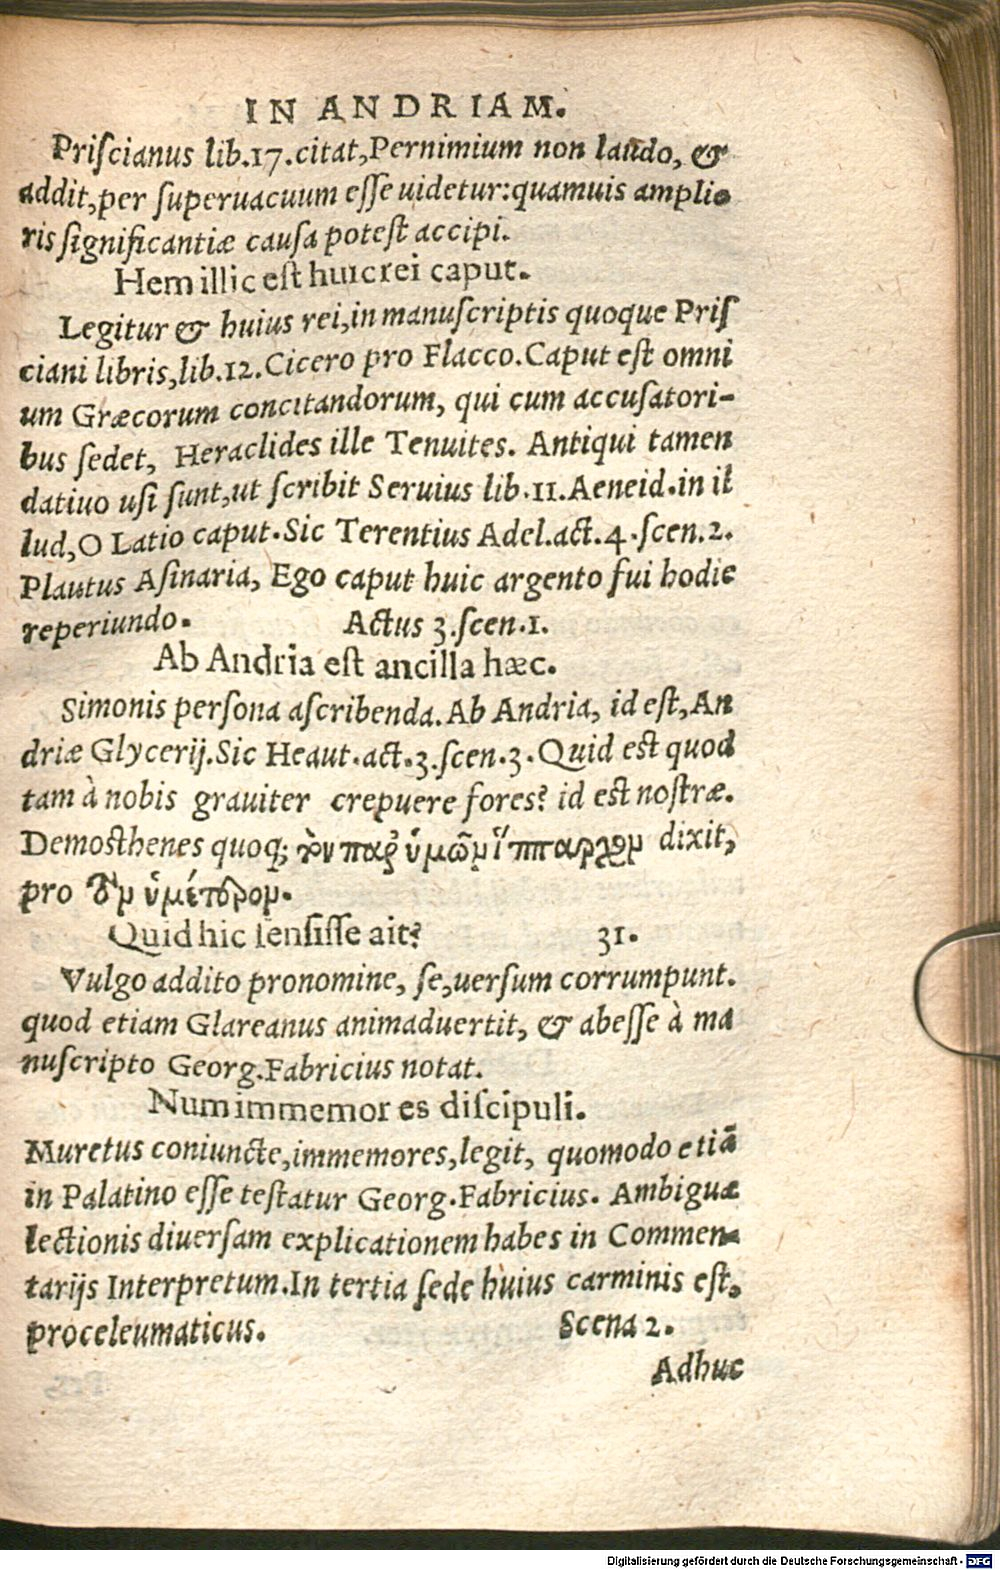 IN ANDRIAM.
Priſcianus lib.17.citat,Pernimium non laudo, &
addit,per ſuperuacuum eſſe uidetur:quamuis amplio
ris ſignificantiæ cauſa poteſt accipi.
Hem illic eſt huic rei caput.
Legitur & huius rei,in manuſcriptis quoque Priſ
ciani libris,lib.12.Cicero pro Flacco.Caput eſt omni
um Græcorum concitandorum, qui cum accuſatori-
bus ſedet, Heraclides ille Temnites. Antiqui tamen
datiuo uſi ſunt,ut ſcribit Seruius lib.11.Aeneid.in il
lud,O Latio caput.Sic Terentius Adel.act.4.ſcen.2.
Plautus Aſinaria, Ego caput huic argento fui hodie
reperiundo. Actus 3.ſcen.1.
Ab Andria eſt ancilla hæc.
Simonis perſona aſcribenda.Ab Andria, id eſt,An
driæ Glycerij.Sic Heaut.act.3.ſcen.3.Quid eſt quod
tam à nobis grauiter crepuere fores? id eſt noſtræ.
Demoſthenes quoq; τὸν παρ' ὑμῶν ἵππαρχον dixit,
pro τὸν ὑμέτερον.
Quid hic ſenſiſſe ait? 31.
Vulgo addito pronomine, ſe,uerſum corrumpunt.
quod etiam Glareanus animaduertit, & abeſſe à ma
nuſcripto Georg.Fabricius notat.
Num immemor es diſcipuli.
Muretus coniuncte,immemores,legit, quomodo etiã
in Palatino eſſe teſtatur Georg.Fabricius. Ambiguæ
lectionis diuerſam explicationem habes in Commen-
tarijs Interpretum.In tertia ſede huius carminis eſt.
proceleumaticus. Scena 2.
Adhuc
Digitalisierung gefördert durch die Deutsche Forschungsgemeinschaft - DFG